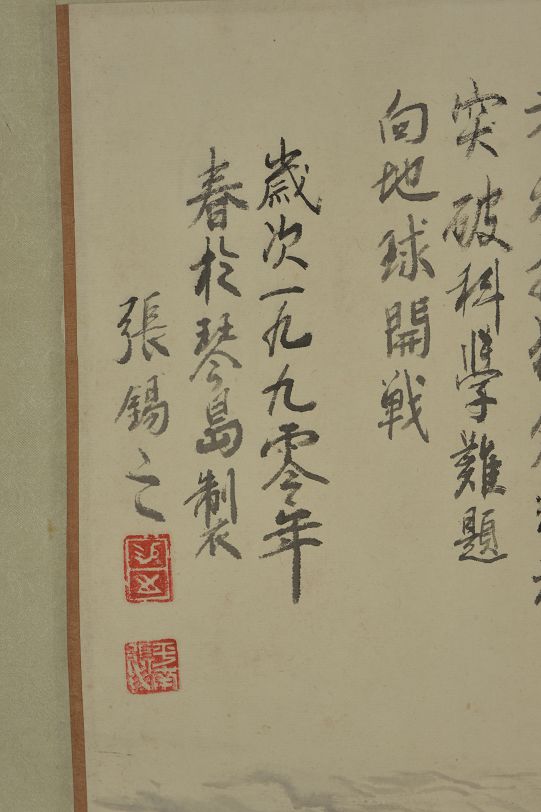 突破科學難題
向地球開戰
歲次一九九零年
春於琴島製
張錫之